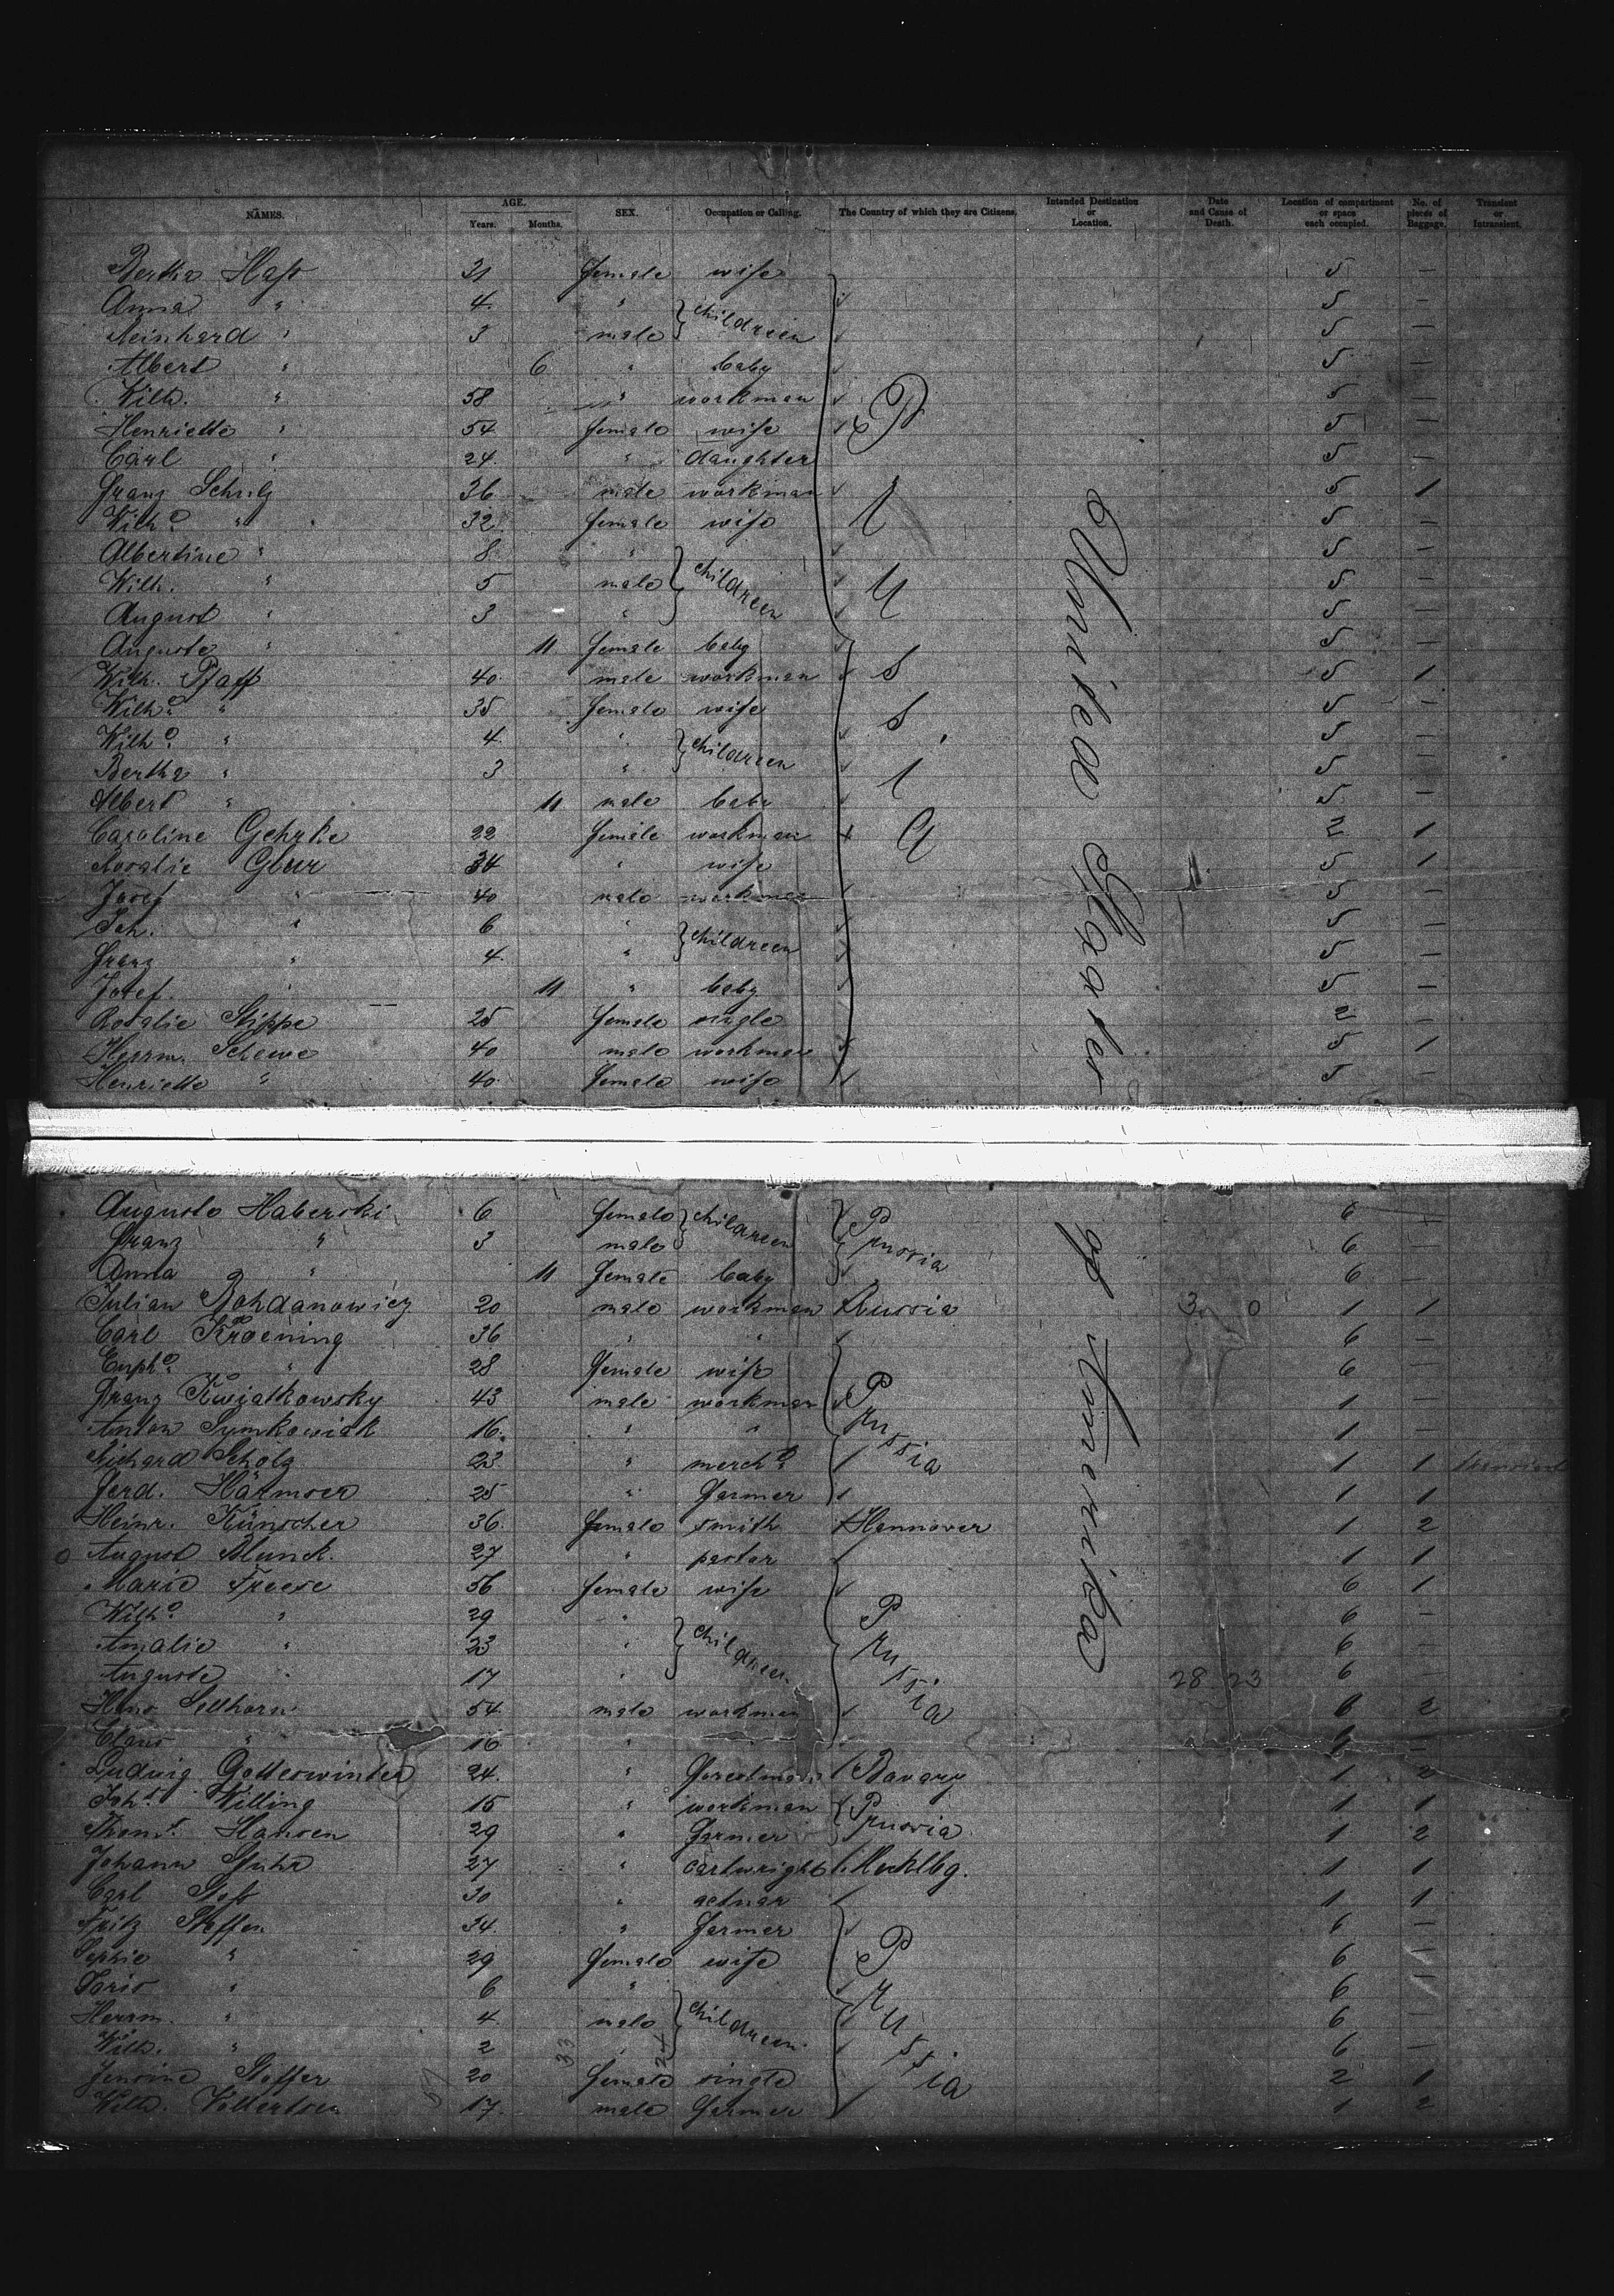 NAMES. AGE. Years. Months. SEX. Occupation or Calling. The Country of which they are Citizens. Intended Destination or Location. Date and Cause of Death. Location of compartment or space each occupied. No. of pieces of Baggage. Transient or Intransient.
Bertha Hass 31 female wife 5 —
Anna " 4 " children 5 —
Reinhard " 3 male 5 —
Albert " 6 " baby 5 —
Wilh. " 58 " workman 5 —
Henriette " 54 female wife 5 —
Carl " 24 " daughter 5 —
Franz Schulz 36 male workman 5 1
Wilhe " 32 female wife 5 —
Albertine " 8 " children 5 —
Wilh. " 5 male 5 —
August " 3 " 5 —
Auguste " 11 female baby 5 —
Wilh. Pfaff 40 male workman 5 1
Wilhe " 35 female wife 5 —
Wilhe " 4 " children 5 —
Bertha " 3 " 5 —
Albert " 11 male baby 5 —
Caroline Gehrke 22 female workman 2 1
Rosalie 34 " wife 5 1
Josef " 40 male workman 5 —
Joh. " 6 " children 5 —
Franz " 4 " 5 —
Josef " 11 " baby 5 —
Rosalie Stippe 25 female single 2 —
Herrm. Schewe 40 male workman 5 1
Henriette " 40 female wife 5 —
Prussia
United States
Auguste Haberski 6 female children Prussia 6 —
Franz " 3 male 6 —
Anna " 11 female baby 6 —
Julian Bohdanowicz 20 male workman Russia 3 0 1 1
Carl Kroening 36 " " 6 —
Euphe " 28 female wife 6 —
Franz Kwiatkowsky 43 male workman Prussia 1 —
Anton Symkowiak 16 " " 1 —
Richard Scholz 23 " mercht 1 1 transient
Ferd. 25 " farmer 1 1
Heinr. Künscher 36 female smith Hannover 1 2
August Munck. 27 " pastor 1 1
Marie Freese 56 female wife 6 1
Wilhe " 29 " children Prussia 6 —
Amalie " 23 " 6 —
Auguste " 17 " 28 23 6 —
Hans Sellhorn 54 male workman 6 2
Claus " 16 " 6 —
Ludwig Gotteswinter 24 " Forestman Bavary 1 2
Johs Willing 15 " workman Prussia 1 1
Thoms. Hansen 29 " farmer 1 2
Johann Stuhr 27 " cartwright Mecklbg. 1 1
Carl 30 " actuar 1 1
Fritz Steffen 34 " farmer Prussia 6 —
Sophie " 29 female wife 6 —
Doris " 6 " children 6 —
Herrm. " 4 male 6
Wilh. " 2 6 —
Steffen 20 female single 2 1
Wilh. Volkertsen 17 male farmer 1 2
of America